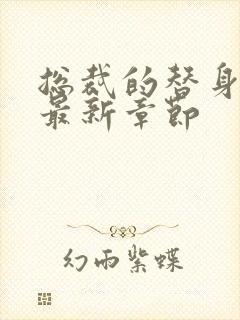 总裁的替身
最新章节
幻雨紫蝶